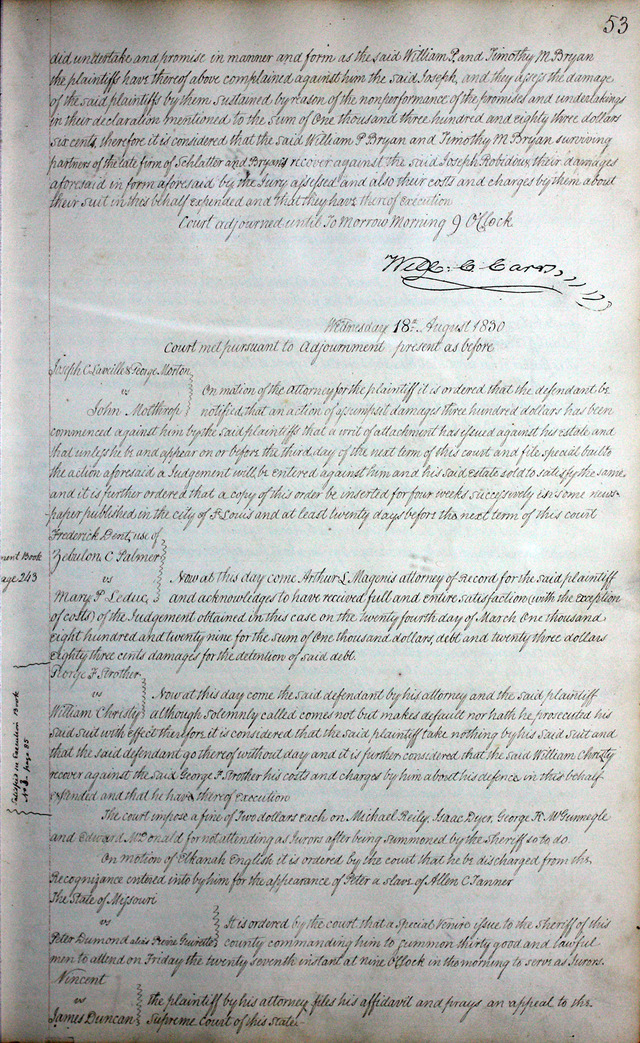 53
did undertake and promise in manner and form as the said William P. and Timothy M Bryan
the plaintiffs have thereof above complained against him the said Joseph, and they assess the damage
of the said plaintiffs by them sustained by reason of the nonperformance of the promises and undertakings
in their declaration mentioned to the Sum of One thousand three hundred and eighty three dollars
six cents, therefore it is considered that the said William P Bryan and Timothy M Bryan surviving
partners of the late firm of Schlatter and Bryans recover against the said Joseph Robidoux their damages
aforesaid in form aforesaid by the Jury assessed and also their costs and charges by them about
their suit in this behalf expended and that they have thereof execution
Court adjourned until To Morrow Morning 9 O'Clock
Will: C. Carr
Wednesday 18th August 1830
Court met pursuant to Adjournment present as before
Joseph C Laveille & George Morton
vs On motion of the attorney for the plaintiff it is ordered that the defendant be
John Molthrop notified that an action of assumpsit damages three hundred dollars has been
commenced against him by the said plaintiffs that a writ of attachment has issued against his estate and
that unless he and appear on or before the third day of the next term of this court and file special bail to
the action aforesaid a Judgement will be entered against him and his said estate sold to satisfy the same
and it is further ordered that a copy of this order be inserted for four weeks successively in some news-
paper published in the city of St Louis and at least twenty days before the next term of this court
Frederick Dent, use of
ment Book
Zebulon C Palmer
age 243
vs Now at this day come Arthur L Magenis attorney of Record for the said plaintiff
Mary P. Leduc, and acknowledges to have received full and entire satisfaction (with the exception
of costs) of the Judgement obtained in this case on the twenty fourth day of March One thousand
eight hundred and twenty nine for the sum of One thousand dollars, debt and twenty three dollars
eighty three cents damages for the detention of said debt.
George F Strother
vs Now at this day come the said defendant by his attorney and the said plaintiff
William Christy although solemnly called comes not but makes default nor hath he prosecuted his
said suit with effect therefore it is considered that the said plaintiff take nothing by his said Suit and
that the said defendant go thereof without day and it is further considered that the said William Christy
recover against the said George F Strother his costs and charges by him about his defence in this behalf
expended and that he have thereof execution
Satisfied in Execution Book
page 85
The court impose a fine of Two dollars each on Michael Reily, Isaac Dyer, George K McGunnegle
and Edward McDonald for not attending as Jurors after being summoned by the Sheriff so to do.
On motion of Elkanah English it is ordered by the court that he be discharged from the
Recognizance entered into by him for the appearance of Peter a slave of Allen C Tanner
The State of Missouri
vs It is ordered by the court that a Special Veniro issue to the Sheriff of this
Peter Dumond alias county commanding him to summon thirty good and lawful
men to attend on Friday the twenty seventh instant at nine O'Clock in the morning to serve as Jurors.
Vincent
vs the plaintiff by his attorney files his affidavit and prays an appeal to the
James Duncan Supreme Court of this State